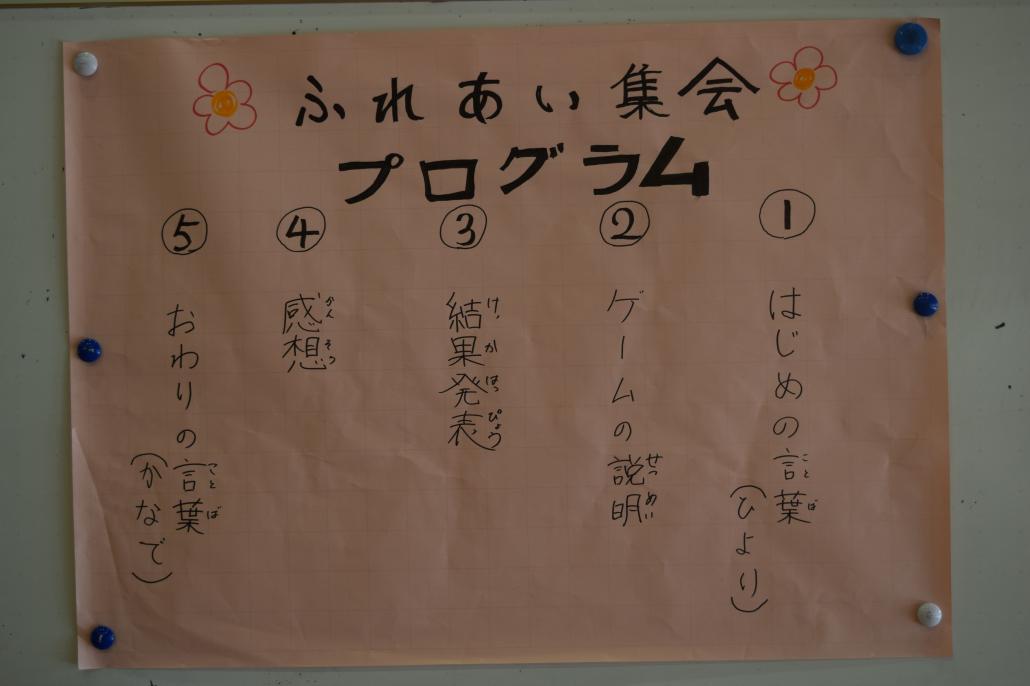 ふれあい集会
プログラム
① はじめの言葉
ことば
(ひより)
② ゲームの説明
せつめい
③ 結果発表
けっかはっぴょう
④ 感想
かんそう
⑤ おわりの言葉
ことば
(かなで)